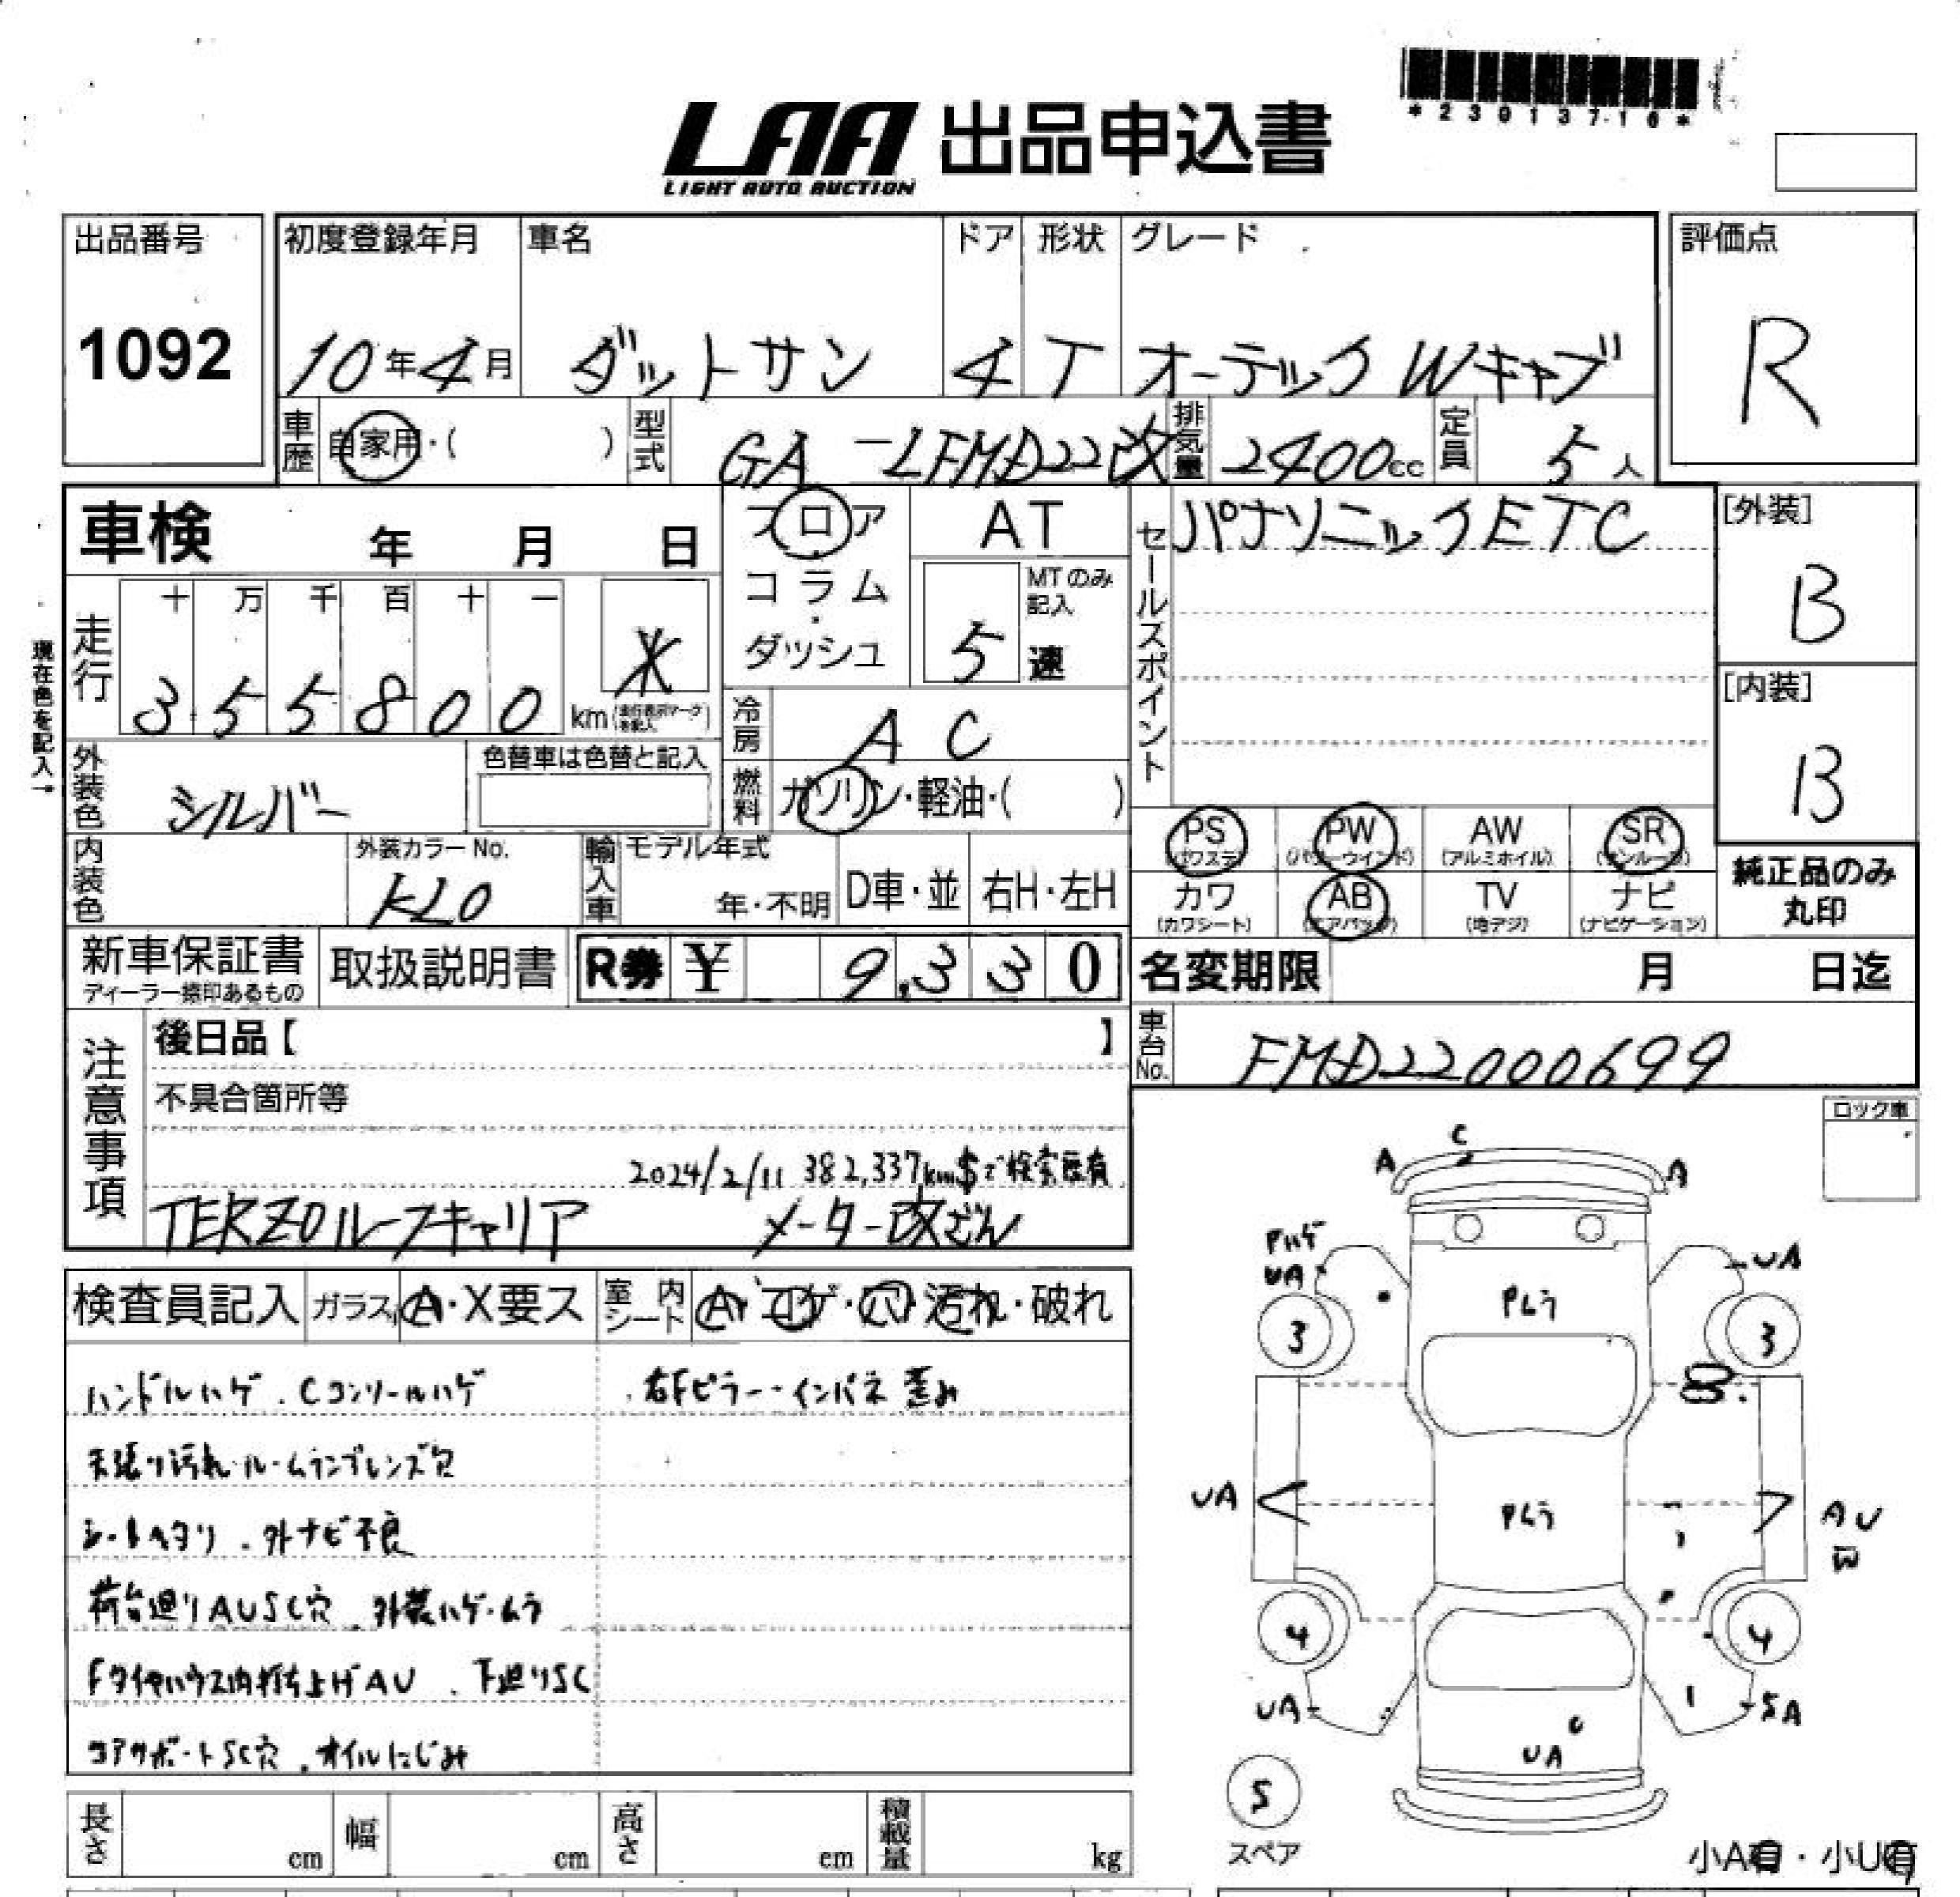 *23013716*
LAA 出品申込書
LIGHT AUTO AUCTION
出品番号
1092
初度登録年月
10年4月
車名
ダットサン
ドア
4
形状
T
グレード
オーテックWキャブ
評価点
R
車歴
自家用・( )
型式
GA-LFMD22改
排気量
2400cc
定員
5人
車検 年 月 日
フロア・コラム・ダッシュ
AT
MTのみ記入
5速
セールスポイント
パナソニックETC
[外装]
B
[内装]
B
現在色を記入→
走行
十 万 千 百 十 一
3 5 5 8 0 0 km
*
(走行表示マークを記入)
冷房
AC
外装色
シルバー
色替車は色替と記入
燃料
ガソリン・軽油・( )
内装色
外装カラーNo.
KL0
輸入車
モデル年式
年・不明
D車・並
右H・左H
PS
(パワステ)
PW
(パワーウインド)
AW
(アルミホイル)
SR
(サンルーフ)
カワ
(カワシート)
AB
(エアバッグ)
TV
(地デジ)
ナビ
(ナビゲーション)
純正品のみ
丸印
新車保証書
ディーラー捺印あるもの
取扱説明書
R券 ¥ 9,330
名変期限 月 日迄
車台No.
FMD22000699
注意事項
後日品【 】
不具合箇所等
2024/2/11 382,337km$で検索歴有
TERZOルーフキャリア メーター改ざん
ロック車
検査員記入
ガラス
A・X要ス
室内シート
A・コゲ・穴・汚れ・破れ
ハンドルハゲ.Cコンソールハゲ
天張り汚れ.ルームランプレンズ欠
シートヘタリ.外ナビ不良
荷台廻りAUSC穴.外装ハゲ・ムラ
Fタイヤハウス内打ち上げAU.下廻りSC
コアサポートSC穴.オイルにじみ
.右Fピラー・インパネ歪み
C
A
A
Pハゲ
UA
UA
3
3
Pムラ
UA
Pムラ
AU
W
4
4
UA
SA
C
UA
5
スペア
小A有・小U有
長さ cm
幅 cm
高さ cm
積載量 kg